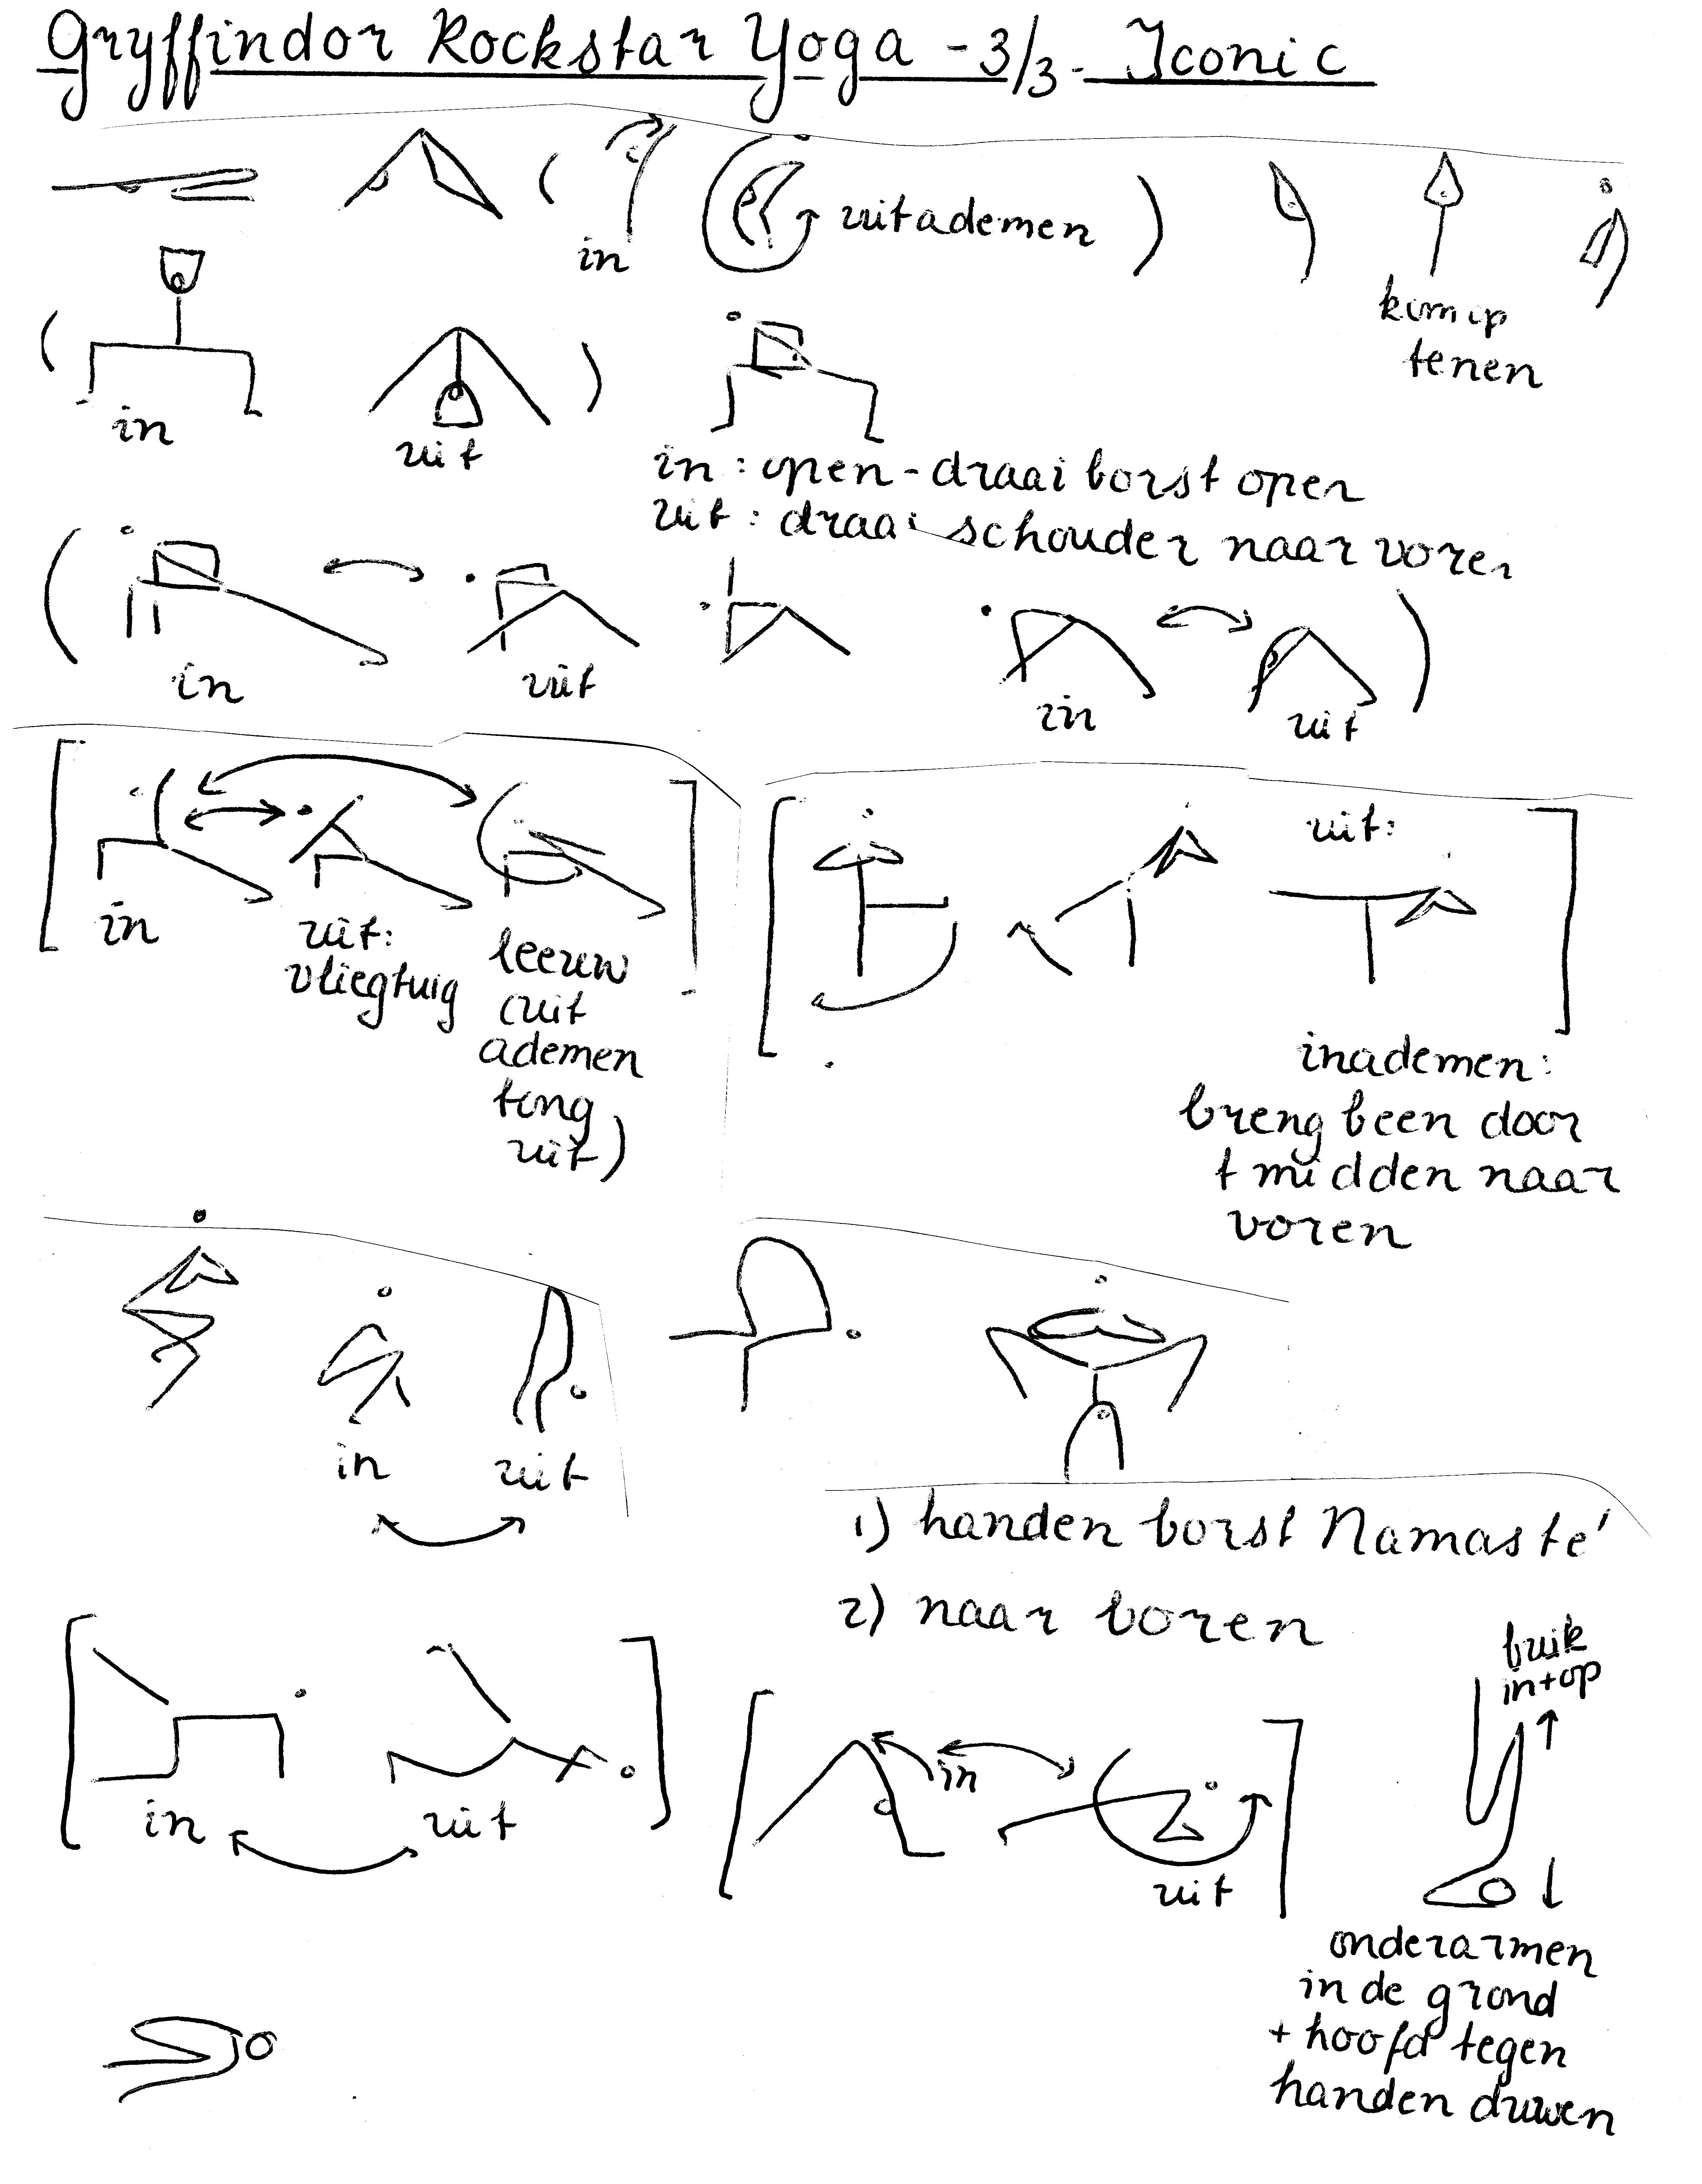 Gryffindor Rockstar Yoga - 3/3 - Iconic
in
uitademen
kom op
tenen
in
uit
in : open - draai borst open
uit : draai schouder naar voren
in
uit
in
uit
in
uit:
vliegtuig
leeuw
(uit
ademen
tong
uit)
uit:
inademen:
breng been door
t midden naar
voren
in
uit
1) handen borst Namasté
2) naar boren
in
uit
in
uit
buik
in+op
onderarmen
in de grond
+ hoofd tegen
handen duwen